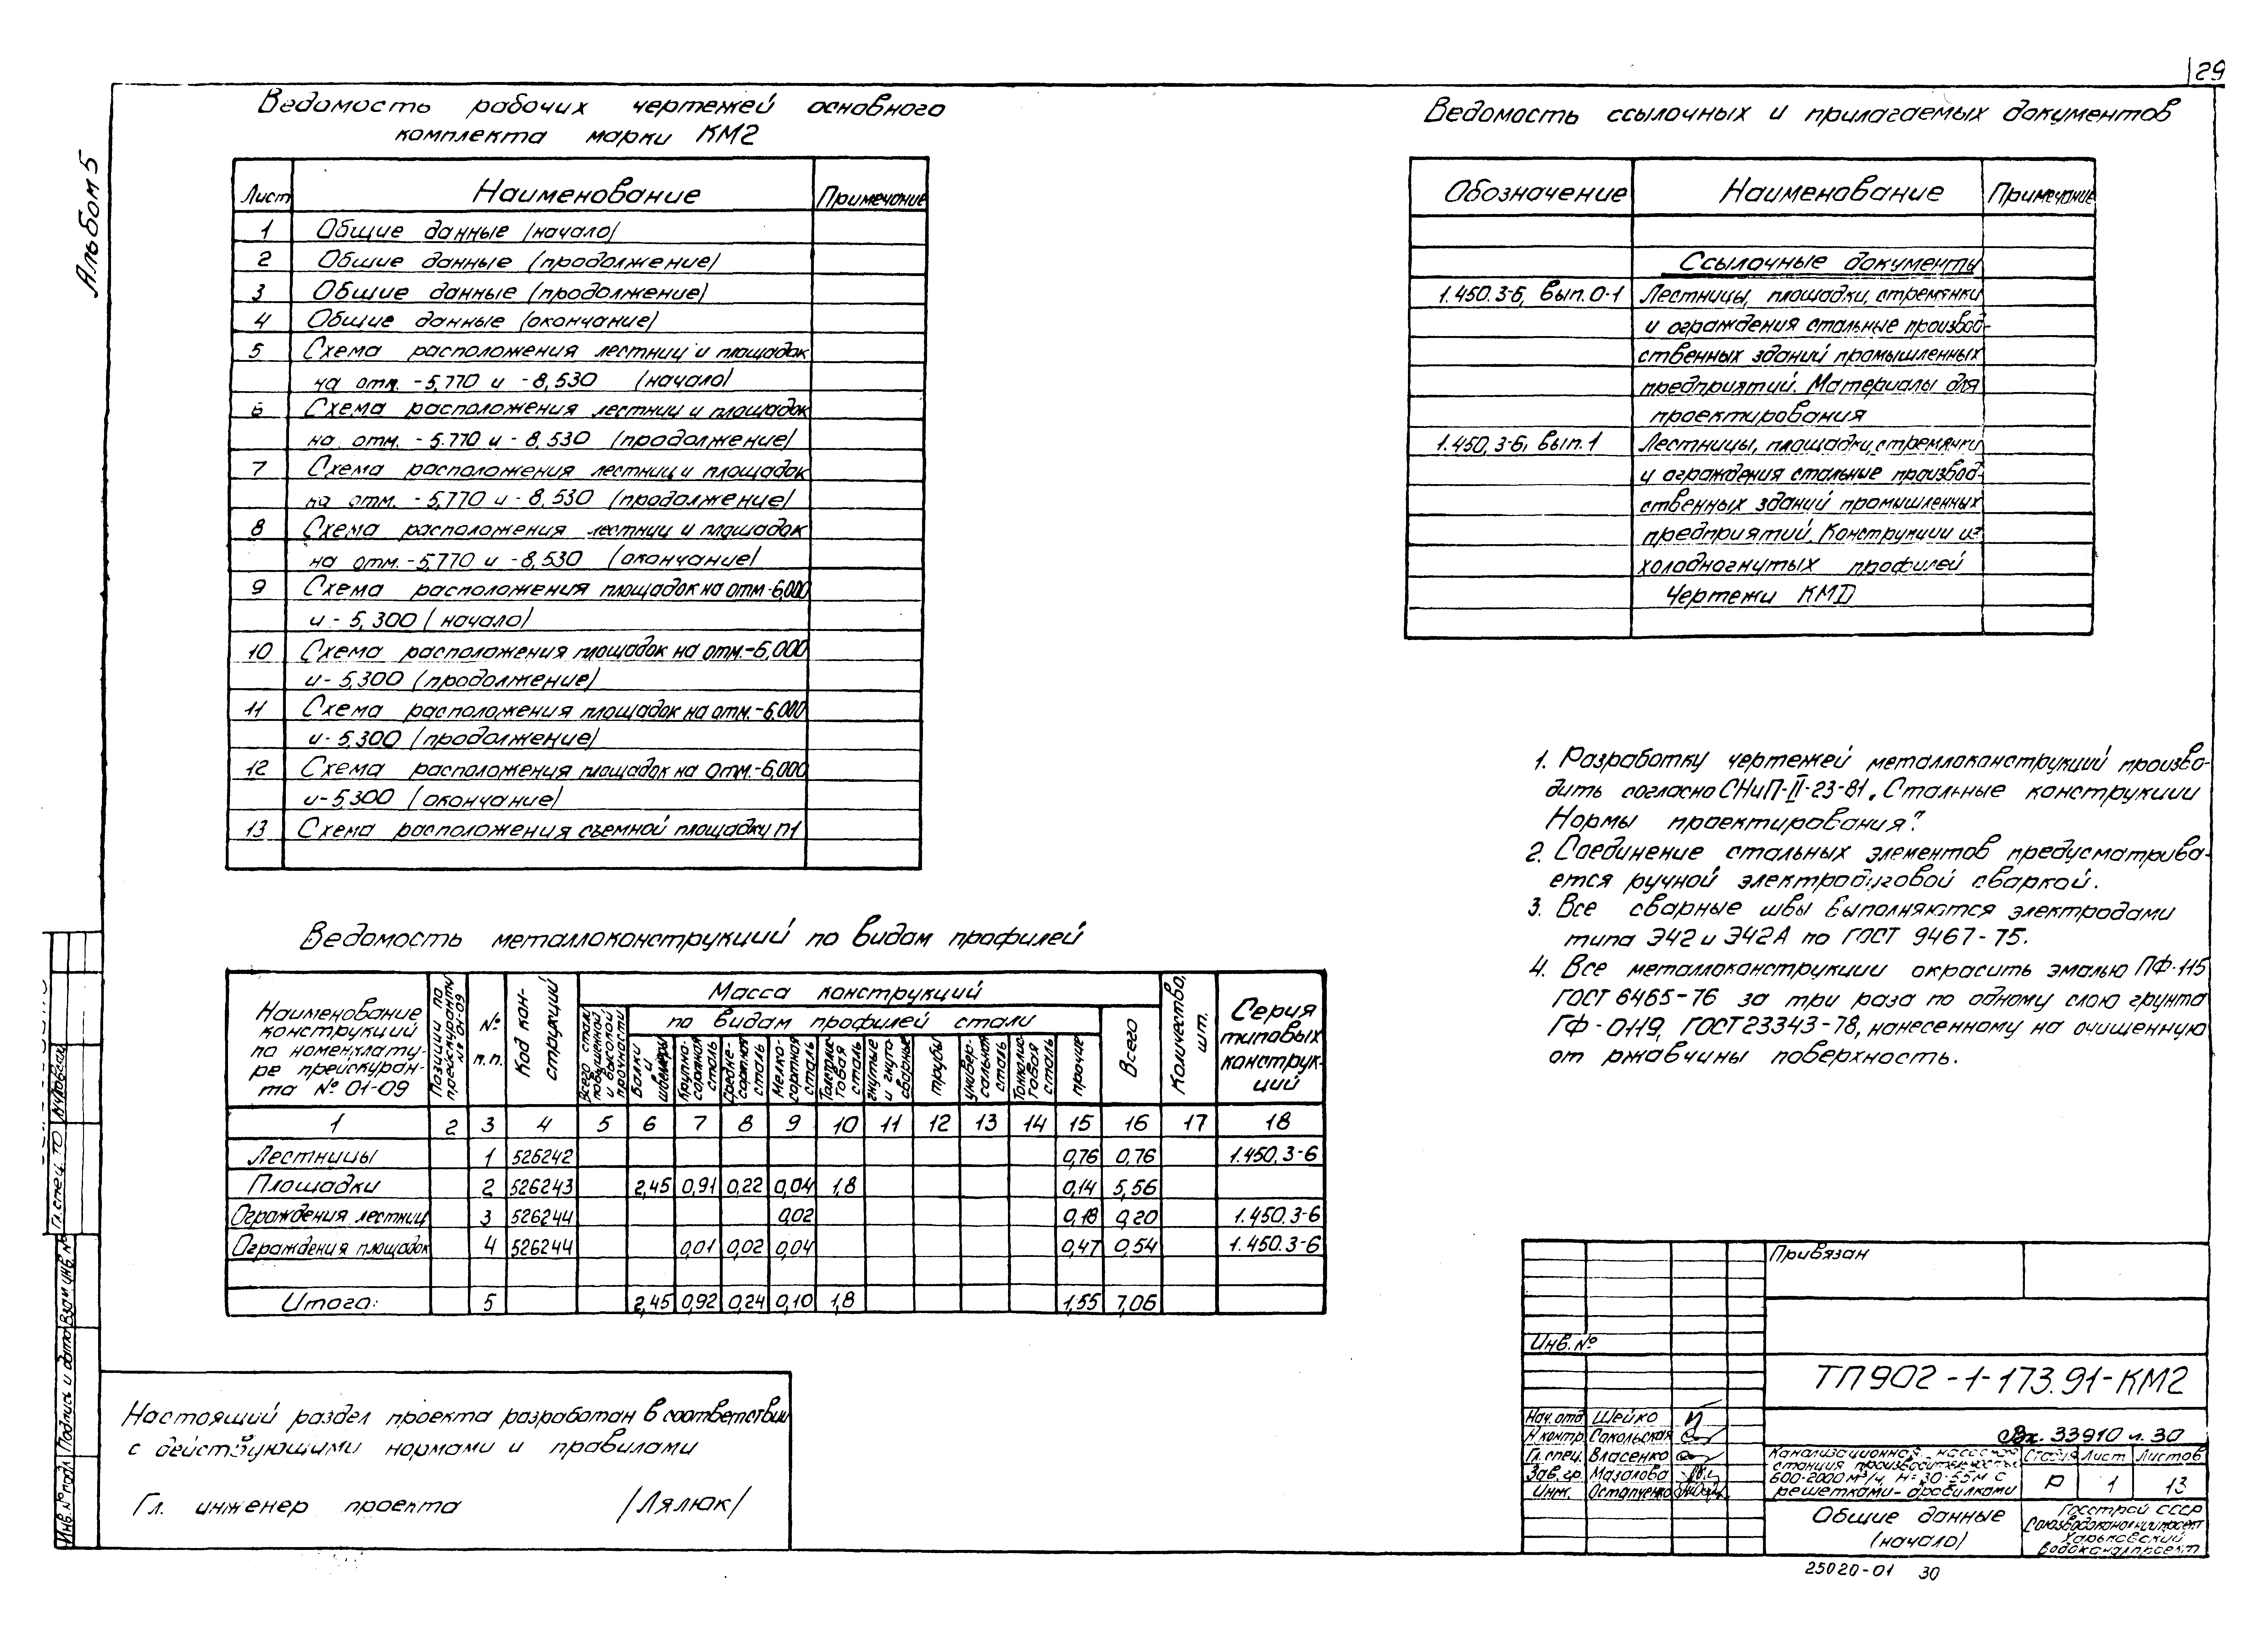 29
Альбом 5
Ведомость рабочих чертежей основного
комплекта марки КМ2
Лист Наименование Примечание
1 Общие данные (начало)
2 Общие данные (продолжение)
3 Общие данные (продолжение)
4 Общие данные (окончание)
5 Схема расположения лестниц и площадок
на отм. -5,770 и -8,530 (начало)
6 Схема расположения лестниц и площадок
на отм. -5.770 и -8,530 (продолжение)
7 Схема расположения лестниц и площадок
на отм. -5,770 и -8,530 (продолжение)
8 Схема расположения лестниц и площадок
на отм. -5,770 и -8,530 (окончание)
9 Схема расположения площадок на отм -6,000
и -5,300 (начало)
10 Схема расположения площадок на отм. -6,000
и -5,300 (продолжение)
11 Схема расположения площадок на отм. -6,000
и -5,300 (продолжение)
12 Схема расположения площадок на отм. -6,000
и -5,300 (окончание)
13 Схема расположения съемной площадки П1
Ведомость ссылочных и прилагаемых документов
Обозначение Наименование Примечание
Ссылочные документы
1.450.3-6, вып.0-1 Лестницы, площадки, стремянки
и ограждения стальные производ-
ственных зданий промышленных
предприятий. Материалы для
проектирования
1.450.3-6, вып.1 Лестницы, площадки, стремянки
и ограждения стальные производ-
ственных зданий промышленных
предприятий. Конструкции из
холодногнутых профилей
Чертежи КМД
1. Разработку чертежей металлоконструкций произво-
дить согласно СНиП-II-23-81 „Стальные конструкции
Нормы проектирования".
2. Соединение стальных элементов предусматрива-
ется ручной электродуговой сваркой.
3. Все сварные швы выполняются электродами
типа Э42 и Э42А по ГОСТ 9467-75.
4. Все металлоконструкции окрасить эмалью ПФ-115
ГОСТ 6465-76 за три раза по одному слою грунта
ГФ-0119, ГОСТ 23343-78, нанесенному на очищенную
от ржавчины поверхность.
Ведомость металлоконструкций по видам профилей
Наименование конструкций по номенклату-ре прейскуран-та № 01-09
Позиции по прейскуранту № 01-09
№ п.п.
Код кон-струкций
Масса конструкций
Всего стали повышенной и высокой прочности
по видам профилей стали
Балки и швеллеры
Крупно-сортная сталь
Средне-сортная сталь
Мелко-сортная сталь
Толстолис-товая сталь
гнутые и гнуто-сварные
трубы
универ-сальная сталь
Тонколис-товая сталь
прочие
Всего
Количество, шт.
Серия типовых конструк-ций
1 2 3 4 5 6 7 8 9 10 11 12 13 14 15 16 17 18
Лестницы 1 526242 0,76 0,76 1.450.3-6
Площадки 2 526243 2,45 0,91 0,22 0,04 1,8 0,14 5,56
Ограждения лестниц 3 526244 0,02 0,18 0,20 1.450.3-6
Ограждения площадок 4 526244 0,01 0,02 0,04 0,47 0,54 1.450.3-6
Итого: 5 2,45 0,92 0,24 0,10 1,8 1,55 7,06
Настоящий раздел проекта разработан в соответствии
с действующими нормами и правилами
Гл. инженер проекта /Лялюк/
Гл.спец. ТО
Инв.№ подл Подпись и дата Взам инв.№
Привязан
Инв.№
ТП902-1-173.91-КМ2
Вх. 33910 л. 30
Нач.отд Шейко
Н контр Сокольская
Гл. спец. Власенко
Зав. гр. Мазалова
Инж. Остапченко
Канализационная насосная
станция производительностью
600-2000 м³/ч, Н=30-55м с
решетками-дробилками
Стадия Лист Листов
Р 1 13
Общие данные
(начало)
Госстрой СССР
Союзводоканалниипроект
Харьковский
Водоканалпроект
25020-01 30